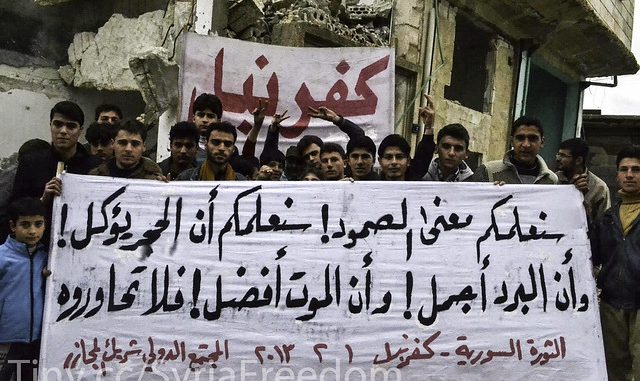 كفرنبل
سنعلمكم معنى الصمود! سنعلمكم أن الحجر يؤكل!
وأن البرد أجمل! وأن الموت أفضل! فلا تحاوروه
الثورة السورية - كفرنبل ١ ٢ ٢٠١٣ المجتمع الدولي شريك لمجازر
Tiny.cc/SyriaFreedom